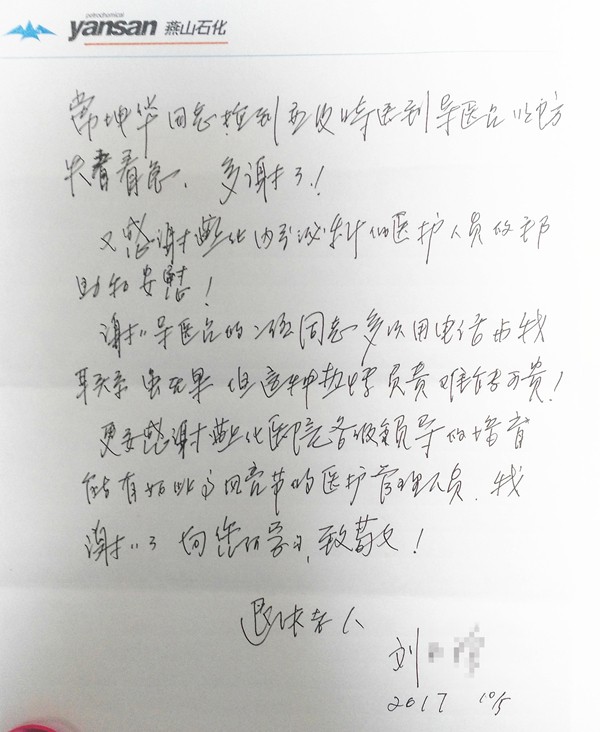 petrochemical
yansan 燕山石化
常坤华同志捡到立及时送到导医台以免
失者着急、多谢了!
又感谢燕化内分泌科的医护人员的帮
助和安慰!
谢谢导医台的二位同志多次用电话与我
联系虽无果 但这种热情负责难能可贵!
更要感谢燕化医院各级领导的培育
能有如此高风亮节的医护管理人员、我
谢谢了 向您们学习,致敬!
退休老人
刘
2017 10/5